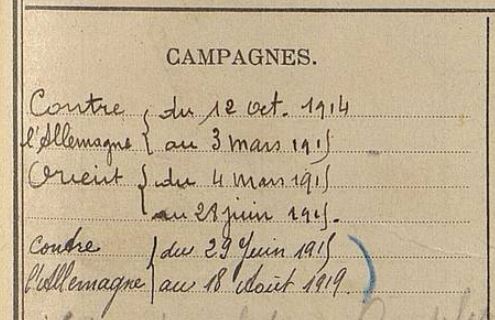 CAMPAGNES.
Contre { du 12 Oct. 1914
l'Allemagne { au 3 mars 1915
Orient { du 4 mars 1915
au 28 juin 1915.
Contre { du 29 Juin 1915
l'Allemagne { au 18 Août 1919